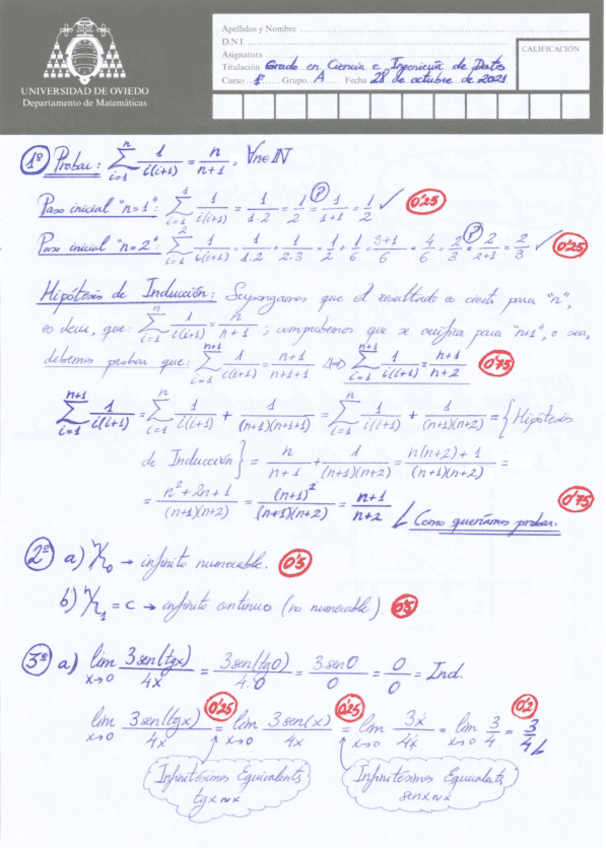 UNIVERSIDAD DE OVIEDO
Departamento de Matemáticas
Apellidos y Nombre
D.N.I.
Asignatura
Titulación Grado en Ciencia e Ingeniería de Datos
Curso 1º Grupo A Fecha 28 de octubre de 2021
CALIFICACIÓN
1º Probar: ∑_{i=1}^{n} 1/(i(i+1)) = n/(n+1), ∀n∈ℕ
Paso inicial "n=1": ∑_{i=1}^{1} 1/(i(i+1)) = 1/(1·2) = 1/2 =(?) 1/(1+1) = 1/2 ✓ 0'25
Paso inicial "n=2": ∑_{i=1}^{2} 1/(i(i+1)) = 1/(1·2) + 1/(2·3) = 1/2 + 1/6 = (3+1)/6 = 4/6 = 2/3 =(?) 2/(2+1) = 2/3 ✓ 0'25
Hipótesis de Inducción: Supongamos que el resultado es cierto para "n",
es decir, que: ∑_{i=1}^{n} 1/(i(i+1)) = n/(n+1); comprobemos que se verifica para "n+1", o sea,
debemos probar que: ∑_{i=1}^{n+1} 1/(i(i+1)) = (n+1)/(n+1+1) ⟺ ∑_{i=1}^{n+1} 1/(i(i+1)) = (n+1)/(n+2) 0'75
∑_{i=1}^{n+1} 1/(i(i+1)) = ∑_{i=1}^{n} 1/(i(i+1)) + 1/((n+1)(n+1+1)) = ∑_{i=1}^{n} 1/(i(i+1)) + 1/((n+1)(n+2)) = {Hipótesis
de Inducción} = n/(n+1) + 1/((n+1)(n+2)) = (n(n+2)+1)/((n+1)(n+2)) =
= (n²+2n+1)/((n+1)(n+2)) = (n+1)²/((n+1)(n+2)) = (n+1)/(n+2) Como queríamos probar. 0'75
2º a) ℵ₀ → infinito numerable. 0'5
b) ℵ₁ = c → infinito continuo (no numerable). 0'5
3º a) lim_{x→0} 3sen(tgx)/4x = 3sen(tg0)/(4·0) = 3sen0/0 = 0/0 = Ind.
lim_{x→0} 3sen(tgx)/4x = 0'25 lim_{x→0} 3sen(x)/4x = 0'25 lim_{x→0} 3x/4x = lim_{x→0} 3/4 = 3/4 0'2
Infinitésimos Equivalents Infinitésimos Equivalents
tgx≈x senx≈x